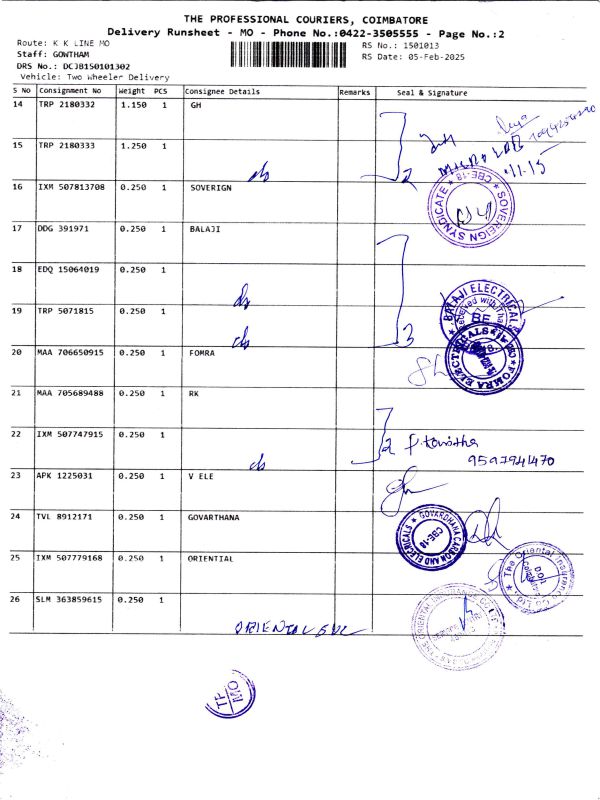 THE PROFESSIONAL COURIERS, COIMBATORE
Delivery Runsheet - MO - Phone No.:0422-3505555 - Page No.:2
Route: K K LINE MO
RS No.: 1501013
Staff: GOWTHAM
RS Date: 05-Feb-2025
DRS No.: DCJB150101302
Vehicle: Two Wheeler Delivery
S No Consignment No Weight PCS Consignee Details Remarks Seal & Signature
14 TRP 2180332 1.150 1 GH
15 TRP 2180333 1.250 1
2
16 IXM 507813708 0.250 1 SOVERIGN
CBE-18 ★ SOVEREIGN SYNDICATE ★
17 DDG 391971 0.250 1 BALAJI
18 EDQ 15064019 0.250 1
BALAJI ELECTRICAL
BE
19 TRP 5071815 0.250 1
3
20 MAA 706650915 0.250 1 FOMRA
FOMRA ELECTRICALS
21 MAA 705689488 0.250 1 RK
22 IXM 507747915 0.250 1
2
9597941470
23 APK 1225031 0.250 1 V ELE
24 TVL 8912171 0.250 1 GOVARTHANA
GOVARDHANA CARBON AND ELECTRICALS
CBE-18
25 IXM 507779168 0.250 1 ORIENTIAL
The Oriental Insurance
26 SLM 363859615 0.250 1
TP
MO